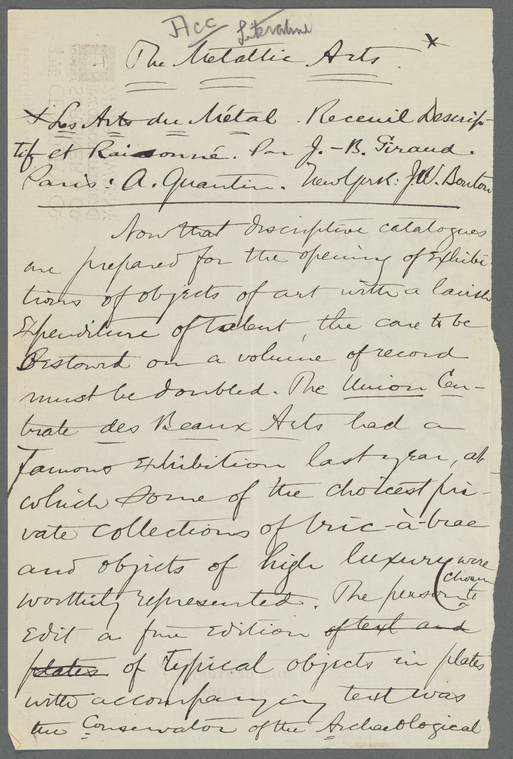 Acc Literature
The Metallic Arts. *
* Les Arts du Métal. Receuil Descrip-
tif et Raisonné. Par J.-B. Giraud.
Paris: A. Quantin. New York: J.W. Bouton
Now that descriptive catalogues
are prepared for the opening of exhibi-
tions of objects of art with a lavish
expenditure of talent, the care to be
bestowed on a volume of record
must be doubled. The Union Cen-
trale des Beaux Arts had a
famous exhibition last year, at
which some of the choicest pri-
vate collections of bric-à-brac
and objects of high luxury were
worthily represented. The person (chosen to
edit a fine edition of text and
plates of typical objects in plates
with accompanying text was
the Conservator of the Archaeological